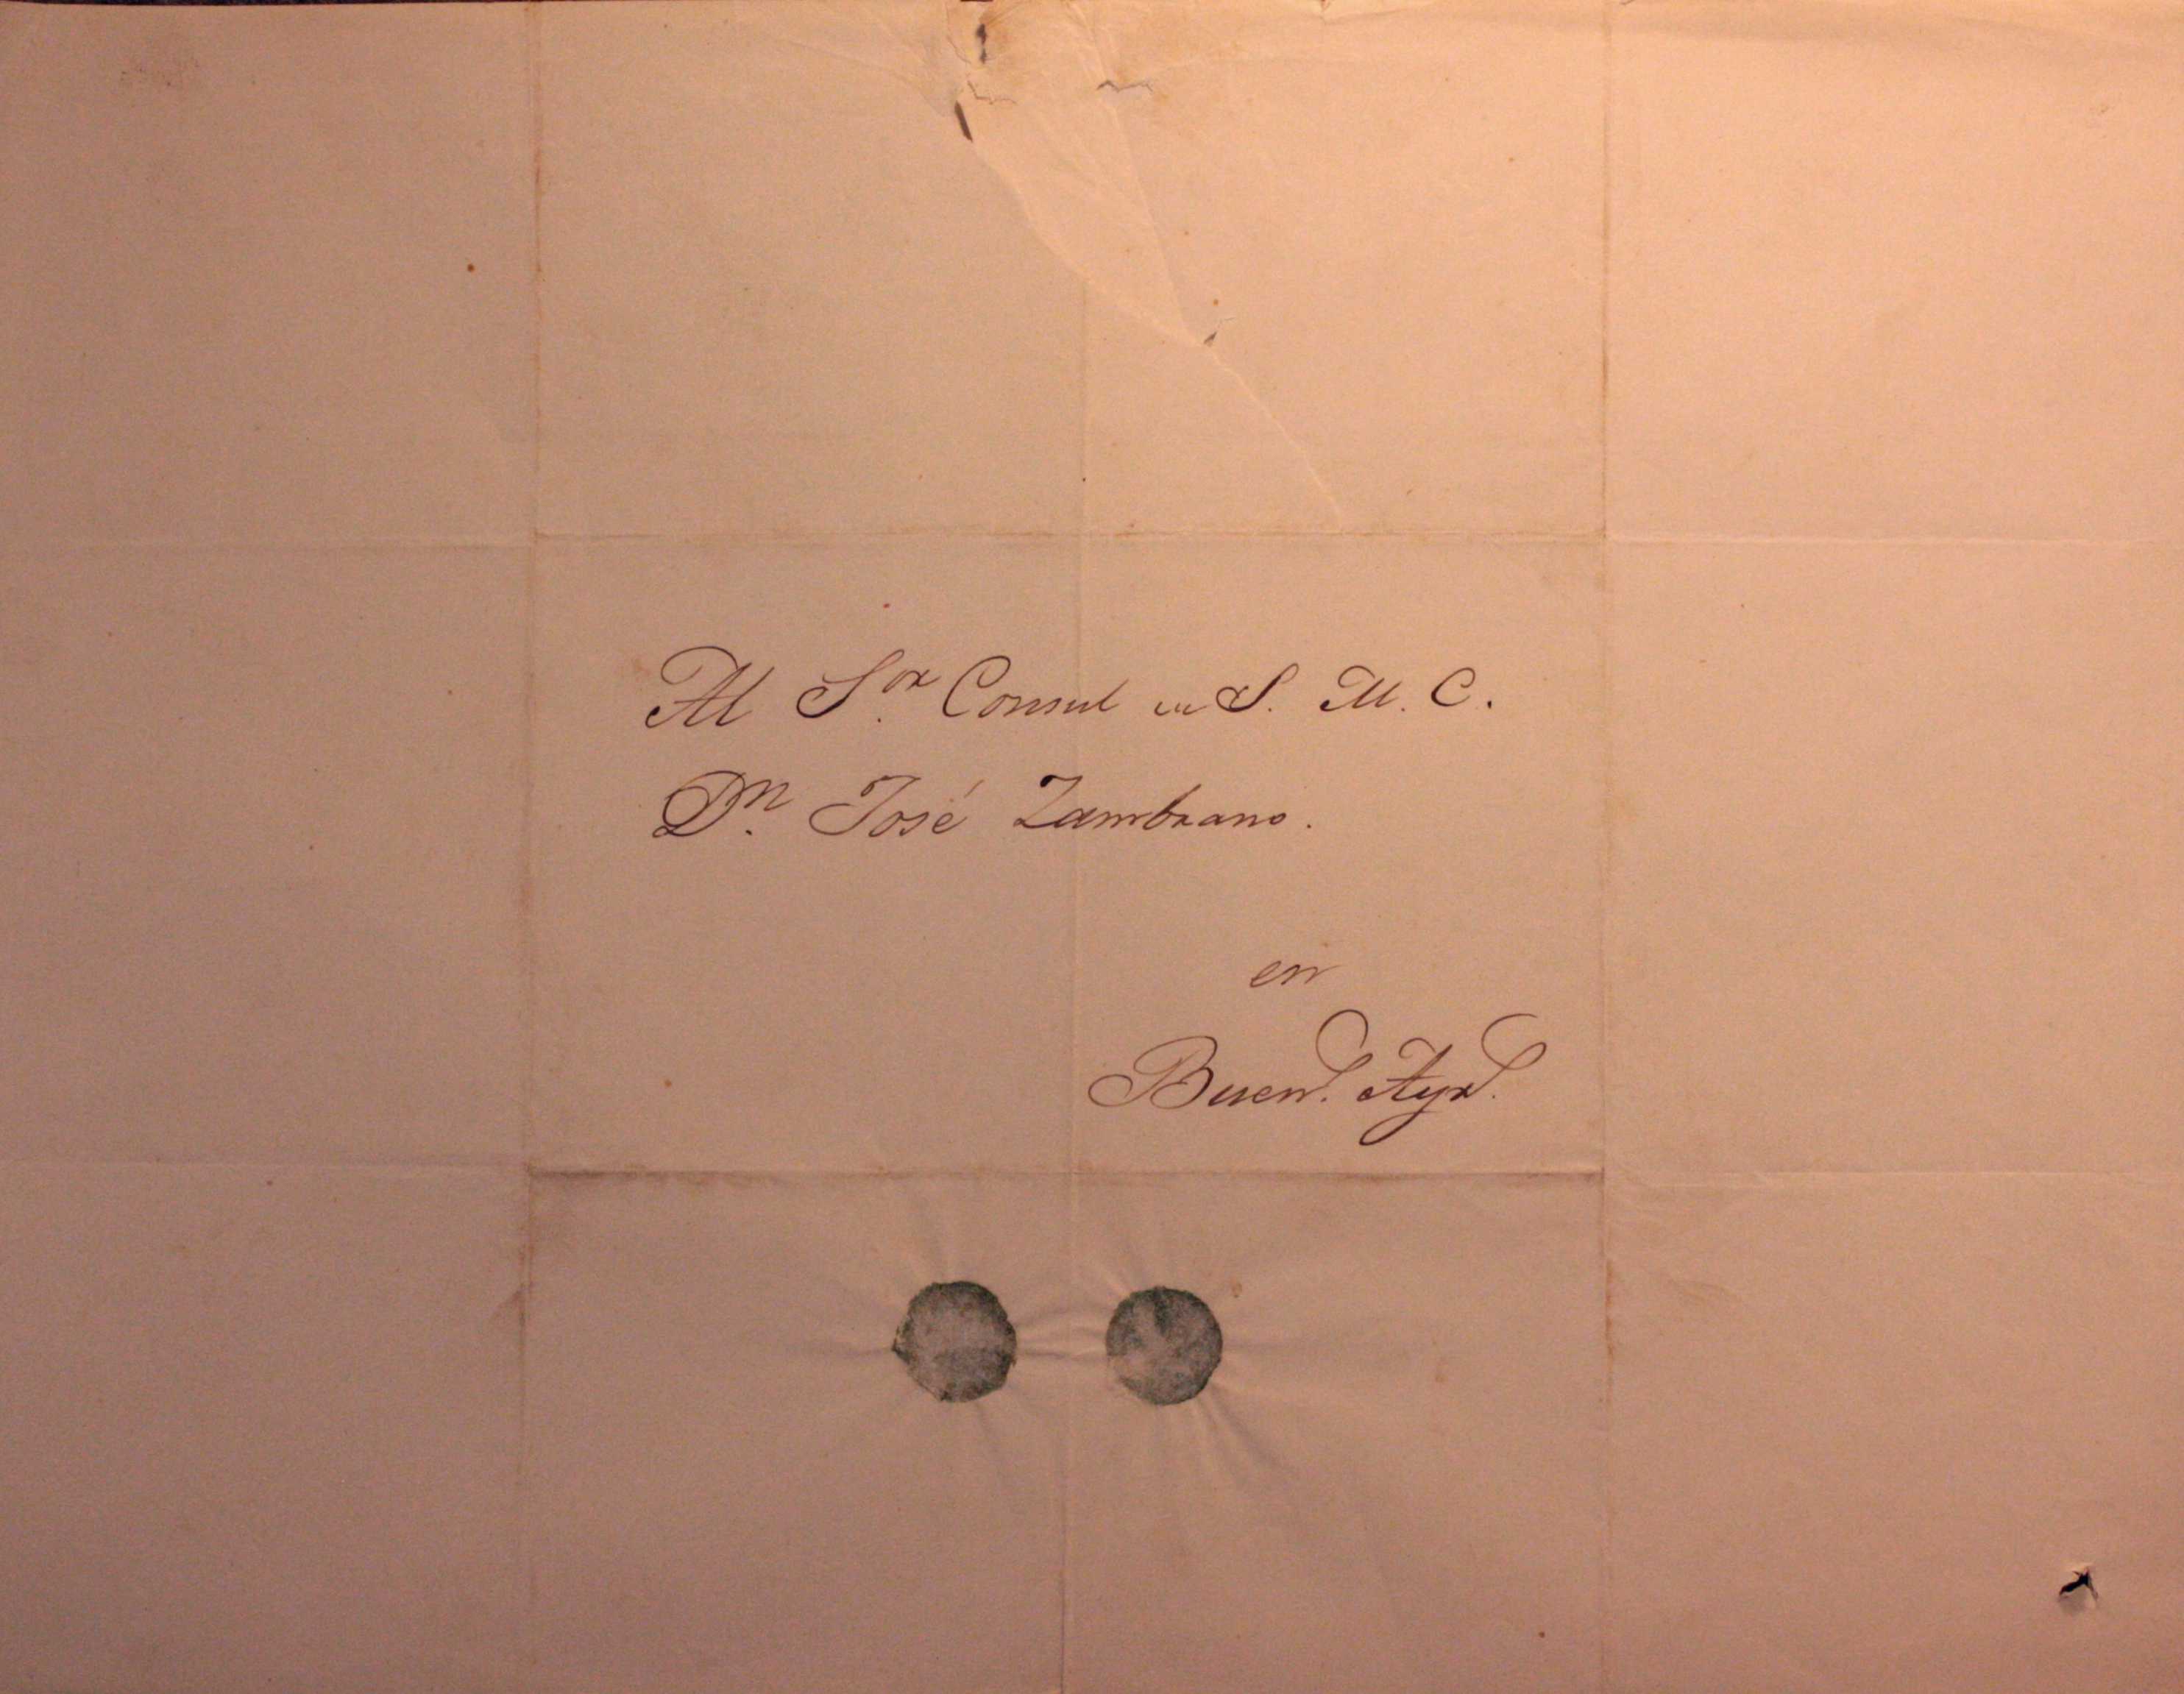 Al S.or Consul de S. M. C.
D.n José Zambrano.
en
Buen.s Ayr.s